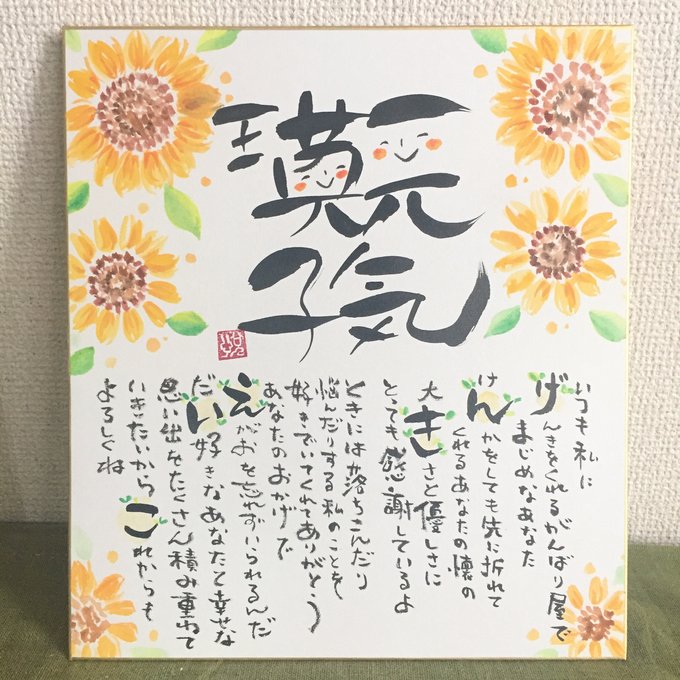 元気
瑛子
いつも私に
げんきをくれるがんばり屋で
まじめなあなた
けんかをしても先に折れて
くれるあなたの懐の
大きさと優しさに
とっても感謝しているよ
ときには落ちこんだり
悩んだりする私のことを
好きでいてくれてありがとう
あなたのおかげで
えがおを忘れずいられるんだ
だい好きなあなたと幸せな
思い出をたくさん積み重ねて
いきたいからこれからも
よろしくね